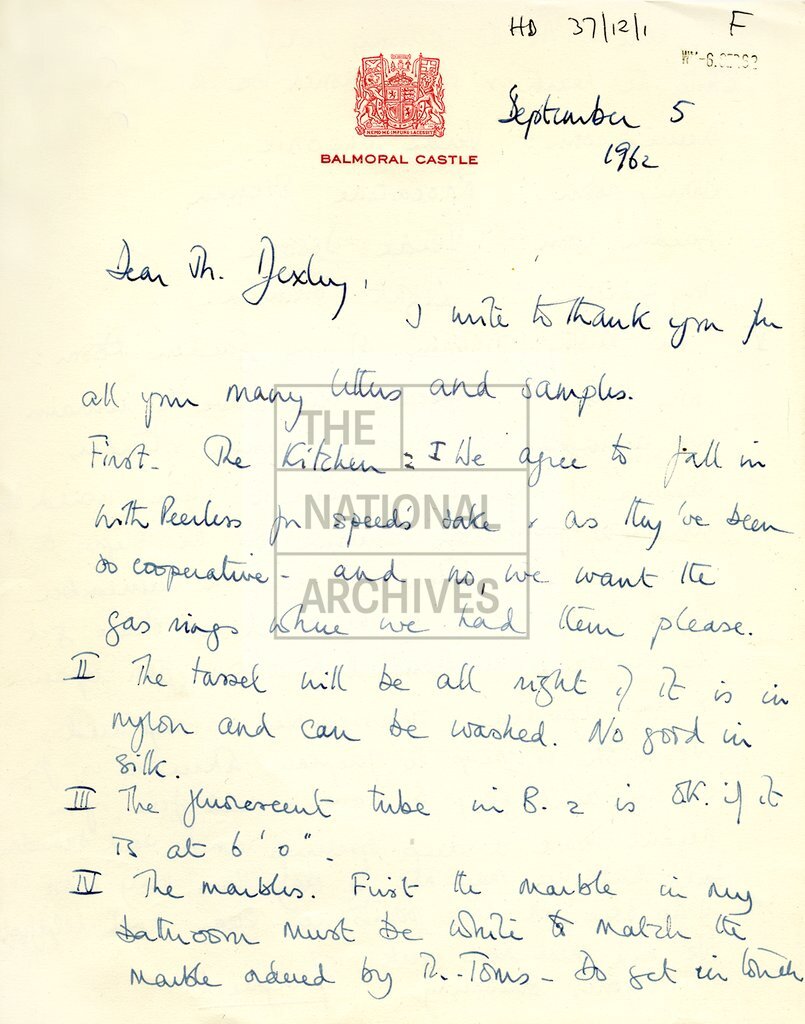 HD 37/12/1 F
NEMO ME IMPUNE LACESSIT
BALMORAL CASTLE
September 5
1962
Dear Mr.
I write to thank you for
all your many letters and samples.
First - The Kitchen = I We agree to fall in
with Peerless for speed's sake & as they've been
so cooperative - and no, we want the
gas rings where we had them please.
II The tassel will be all right if it is in
nylon and can be washed. No good in
silk.
III The fluorescent tube in B. 2 is OK. if it
is at 6' 0".
IV The marbles. First the marble in my
bathroom must be white to match the
marble ordered by Mr. Toms - Do get in touch
THE
NATIONAL
ARCHIVES